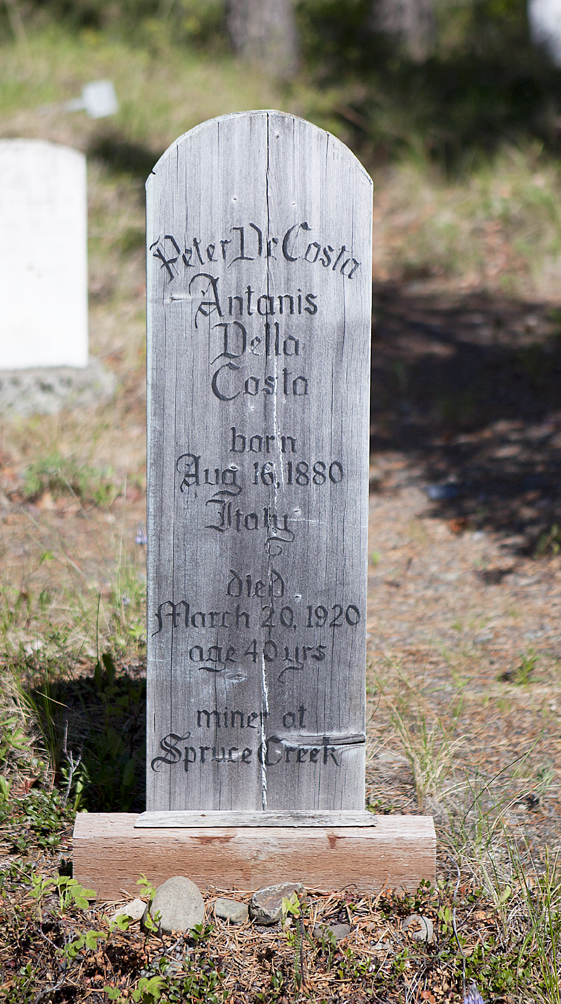 Peter De Costa
Antanis
Della
Costa
born
Aug 16, 1880
Italy
died
March 20, 1920
age 40 yrs
miner at
Spruce Creek